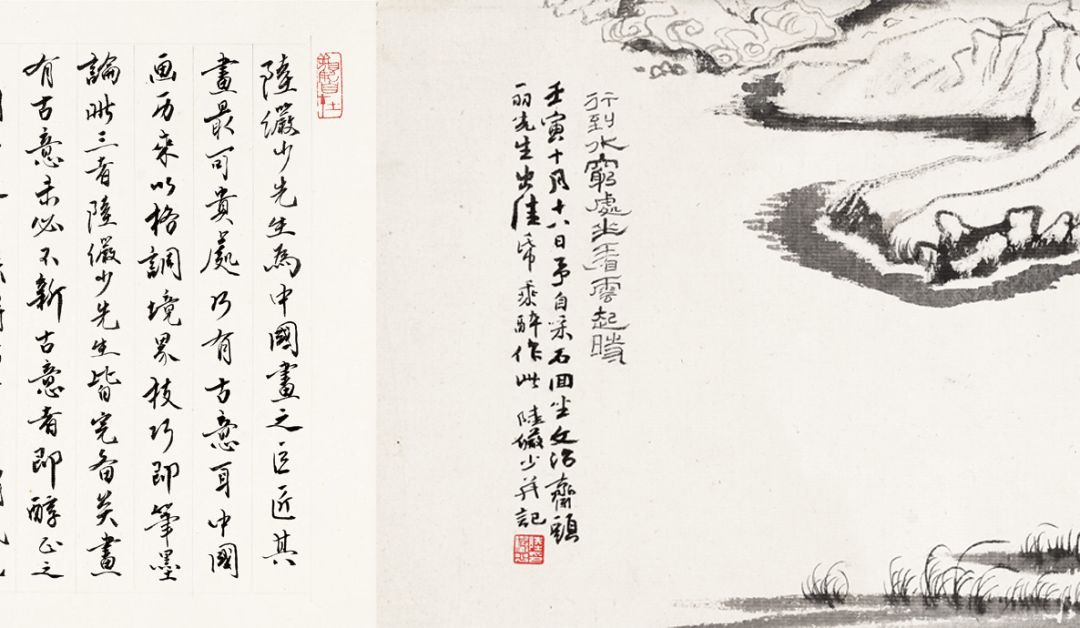 行到水窮處坐看雲起時
壬寅十月十八日予自采石回坐文治齋頭
丽先生出佳帋乘醉作此 陸儼少并記
陸儼少先生為中國畫之巨匠其
畫最可貴處乃有古意耳中國
画历来以格調境界技巧即筆墨
論此三者陸儼少先生皆完备矣畫
有古意未必不新古意者即醇正之